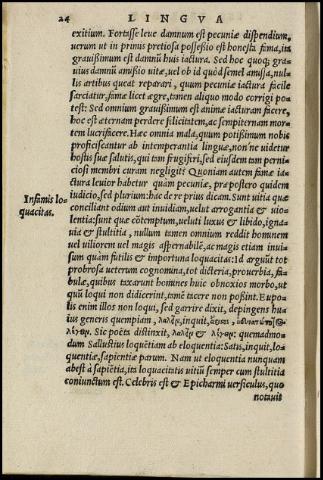 24 LINGVA
exitium. Fortisse leue damnum est pecuniæ dispendium,
uerum ut in primis pretiosa possessio est honesta fama, ita
grauissimum est damnū huis iactura. Sed hoc quoq; gra⸗
uius damnū amissio uitæ, uel ob id quòd semel amissa, nul⸗
lis artibus queat reparari, quum pecuniæ iactura facile
sarciatur, famæ licet ægre, tamen aliquo modo corrigi po⸗
test: Sed omnium grauissimum est animæ iacturam facere,
hoc est æternam perdere felicitatem, ac sempiternam mor⸗
tem lucrifacere. Hæc omnia mala, quum potissimum nobis
proficiscantur ab intemperantia linguæ, non'ne uidetur
hostis suæ salutis, qui tam frugiferi, sed eiusdem tam perni⸗
ciosi membri curam negligit? Quoniam autem famæ ia⸗
ctura leuior habetur quàm pecuniæ, præpostero quidem
iudicio, sed plurium: hac de re prius dicam. Sunt uitia quæ
Infamis lo⸗
quacitas.
conciliant odium aut inuidiam, uelut arrogantia & uio⸗
lentia: sunt quæ cōtemptum, ueluti luxus & libido, igna⸗
uia & stultitia, nullum tamen omnium reddit hominem
uel uiliorem uel magis aspernabilē, ac magis etiam inui⸗
sum quàm futilis & importuna loquacitas: Id arguūt tot
probrosa ueterum cognomina, tot dicteria, prouerbia, fa⸗
bulæ, quibus taxarunt homines huic obnoxios morbo, ut
quū loqui non didicerint, tamē tacere non possint. Eupo⸗
lis enim illos non loqui, sed garrire dixit, depingens hu⸗
ius generis quempiam, λαλεῖν, inquit, ἄριστος, ἀδυνατώτατος
λέγειν. Sic poëta distinxit, λαλεῖν & λέγειν: quemadmo⸗
dum Sallustius loquētiam ab eloquentia: Satis, inquit, lo⸗
quentiæ, sapientiæ parum. Nam ut eloquentia nunquam
abest à sapiētia, ita loquacitatis uitiū semper cum stultitia
coniunctum est. Celebris est & Epicharmi uersiculus, quo
notauit